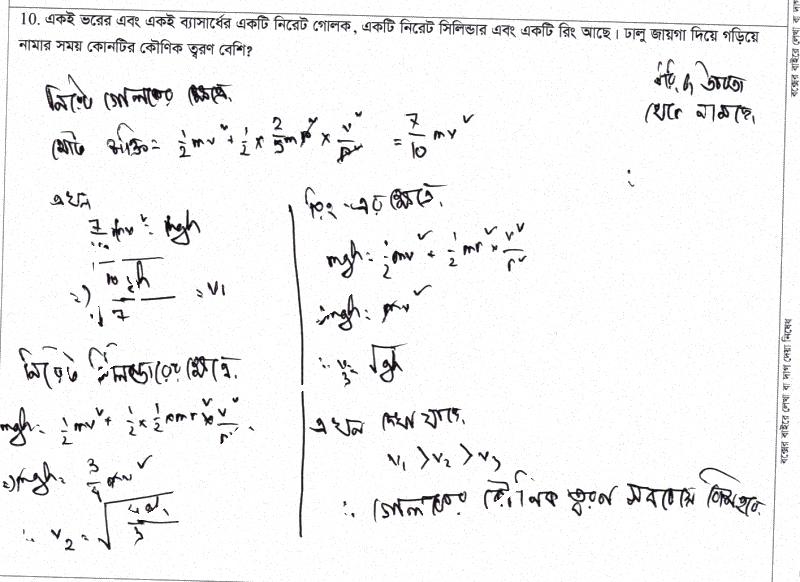 10. একই ভরের এবং একই ব্যাসার্ধের একটি নিরেট গোলক, একটি নিরেট সিলিন্ডার এবং একটি রিং আছে। ঢালু জায়গা দিয়ে গড়িয়ে
নামার সময় কোনটির কৌণিক ত্বরণ বেশি?
ধরি, h উচ্চতা
থেকে নামছে।
নিরেট গোলকের ক্ষেত্রে,
মোট শক্তি = 1/2 mv² + 1/2 × 2/5 mr² × v²/r² = 7/10 mv²
এখন
7/10 mv² = mgh
⇒ √(10gh/7) = v₁
নিরেট সিলিন্ডারের ক্ষেত্রে,
mgh = 1/2 mv² + 1/2 × 1/2 mr² × v²/r²
⇒ mgh = 3/4 mv²
∴ v₂ = √(4gh/3)
রিং-এর ক্ষেত্রে,
mgh = 1/2 mv² + 1/2 mr² × v²/r²
mgh = mv²
∴ v₃ = √gh
এখন দেখা যাচ্ছে,
v₁ > v₂ > v₃
∴ গোলকের কৌণিক ত্বরণ সবচেয়ে বেশি হবে
বক্সের বাইরে লেখা বা দাগ দেয়া নিষেধ
বক্সের বাইরে লেখা বা দাগ